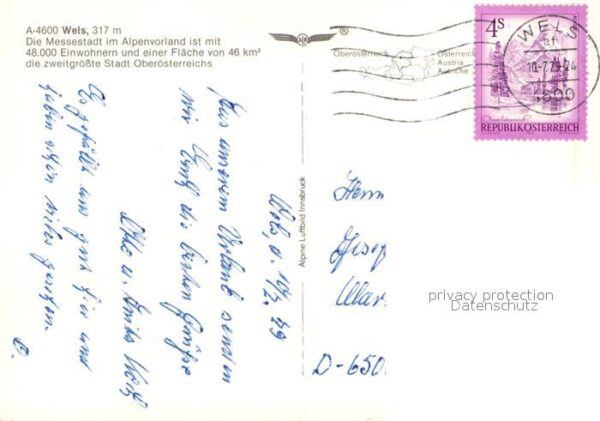 A-4600 Wels, 317 m
Die Messestadt im Alpenvorland ist mit
48.000 Einwohnern und einer Fläche von 46 km²
die zweitgrößte Stadt Oberösterreichs
Oberösterreich
Österreich
Austria
Autriche
4S
REPUBLIK ÖSTERREICH
WELS
4600
Alpine Luftbild Innsbruck
Wels, d. 10/7. 79
Aus unserem Urlaub senden
wir Euch die besten Grüße
Otto u.
Es gefällt uns gut hier und
haben schon viles gesehen.
Herrn
Josef
War
D-650
privacy protection
Datenschutz